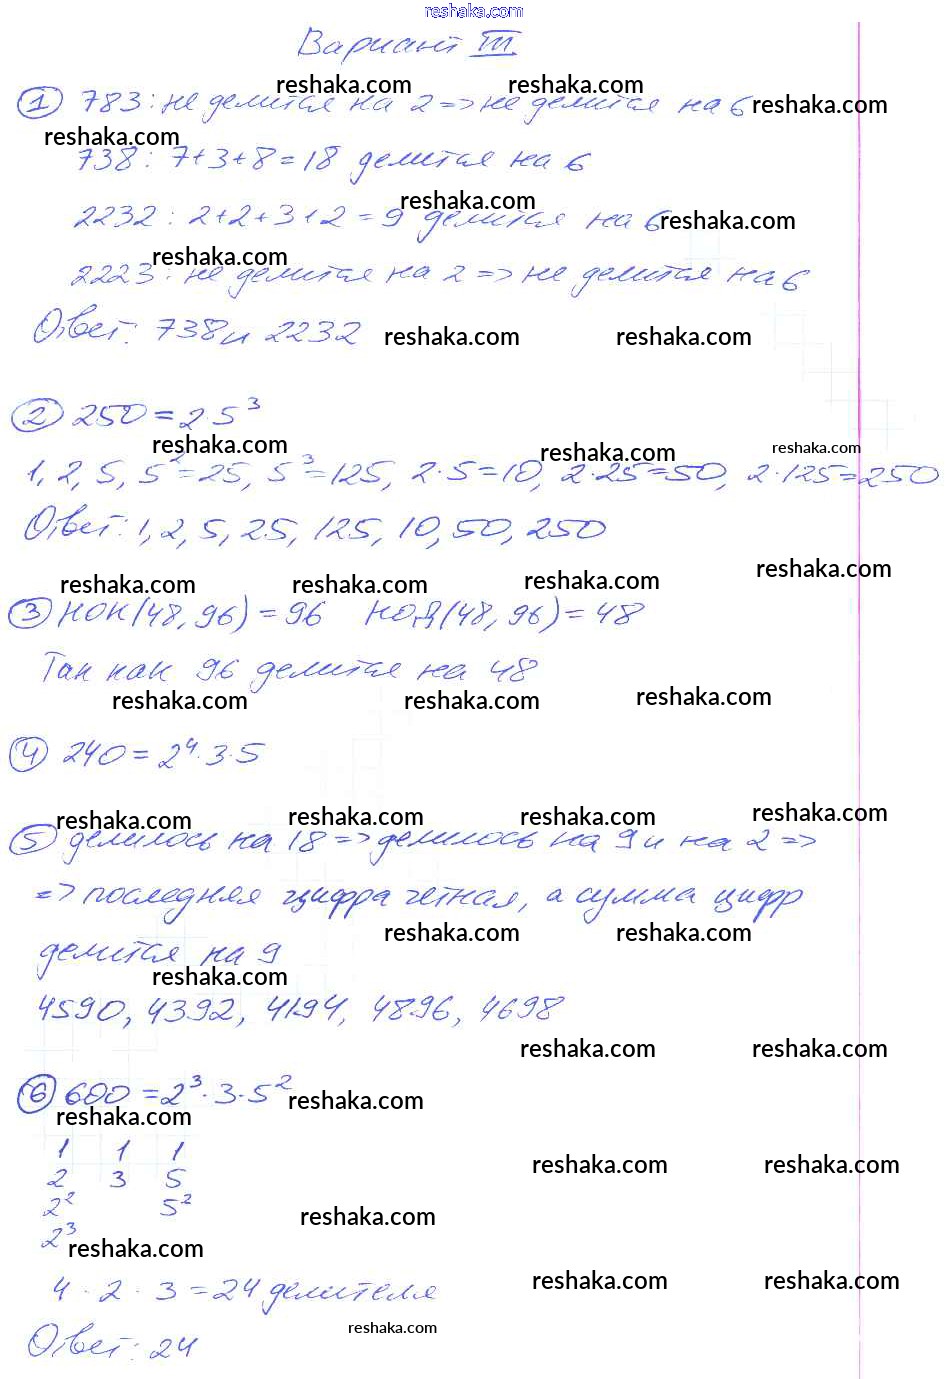 reshaka.com
Вариант III
reshaka.com reshaka.com
① 783: не делится на 2 => не делится на 6 reshaka.com
reshaka.com
738: 7+3+8=18 делится на 6
reshaka.com
2232: 2+2+3+2=9 делится на 6 reshaka.com
reshaka.com
2223: не делится на 2 => не делится на 6
Ответ: 738 и 2232 reshaka.com reshaka.com
② 250=2·5³
reshaka.com reshaka.com reshaka.com
1, 2, 5, 5²=25, 5³=125, 2·5=10, 2·25=50, 2·125=250
Ответ: 1, 2, 5, 25, 125, 10, 50, 250
reshaka.com reshaka.com reshaka.com reshaka.com
③ НОК(48, 96)=96 НОД(48, 96)=48
Так как 96 делится на 48
reshaka.com reshaka.com reshaka.com
④ 240=2⁴·3·5
reshaka.com reshaka.com reshaka.com reshaka.com
⑤ делилось на 18 => делилось на 9 и на 2 =>
=> последняя цифра четная, а сумма цифр
reshaka.com reshaka.com
делится на 9
reshaka.com
4590, 4392, 4194, 4896, 4698
reshaka.com reshaka.com
⑥ 600=2³·3·5² reshaka.com
reshaka.com
1 1 1
2 3 5 reshaka.com reshaka.com
2² 5²
reshaka.com
2³ reshaka.com
4·2·3=24 делителя reshaka.com reshaka.com
reshaka.com
Ответ: 24